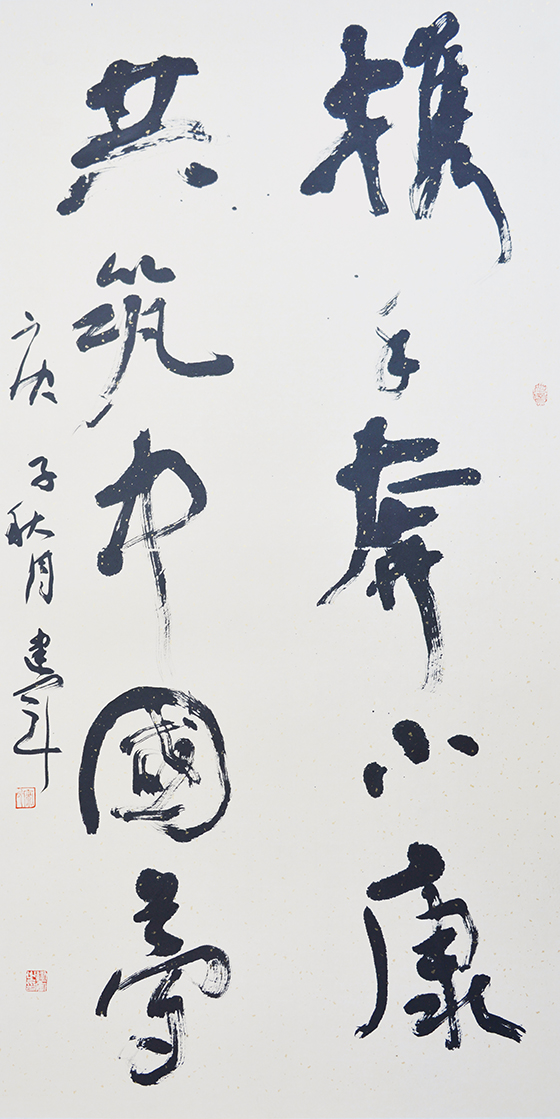 携手奔小康
共筑中國夢
庚子秋月建军